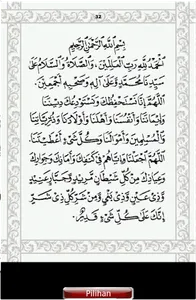 33
بِسْمِ اللَّهِ الرَّحْمَنِ الرَّحِيمِ
اَلْحَمْدُ لِلَّهِ رَبِّ الْعَالَمِيْنَ، وَالصَّلَاةُ وَالسَّلَامُ عَلَى
سَيِّدِنَا مُحَمَّدٍ وَعَلَى آلِهِ وَصَحْبِهِ أَجْمَعِيْنَ.
اَللَّهُمَّ إِنَّا نَسْتَحْفِظُكَ وَنَسْتَوْدِعُكَ دِيْنَنَا
وَأَنْفُسَنَا وَأَهْلَنَا وَأَوْلَادَنَا
وَأَمْوَالَنَا وَكُلَّ شَيْءٍ أَعْطَيْتَنَا.
اَللَّهُمَّ اجْعَلْنَا فِي كَنَفِكَ وَأَمَانِكَ وَجِوَارِكَ
وَعِيَاذِكَ مِنْ كُلِّ شَيْطَانٍ مَرِيْدٍ وَجَبَّارٍ عَنِيْدٍ
وَذِيْ عَيْنٍ وَذِيْ بَغْيٍ وَمِنْ شَرِّ كُلِّ ذِيْ شَرٍّ
إِنَّكَ عَلَى كُلِّ شَيْءٍ قَدِيْرٌ.
Pilihan